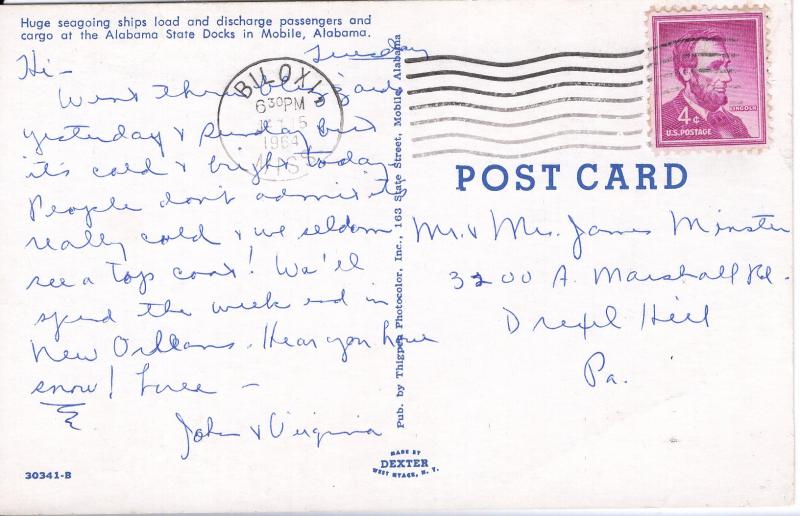 Huge seagoing ships load and discharge passengers and
cargo at the Alabama State Docks in Mobile, Alabama.
Tuesday
Hi-
Went thru blizzard
yesterday & Sunday but
it's cold & bright today.
People don't admit it's
really cold & we seldom
see a top coat! We'll
spend the week end in
New Orleans. Hear you have
snow! Love -
John & Virginia
30341-B
Pub. by Thigpen Photocolor, Inc., 163 State Street, Mobile, Alabama
MADE BY
DEXTER
WEST NYACK, N. Y.
BILOXI
6 30 PM
15
1964
MISS
4¢
LINCOLN
U.S. POSTAGE
POST CARD
Mr. & Mrs. James Minster
3200 A. Marshall Rd.
Drexel Hill
Pa.